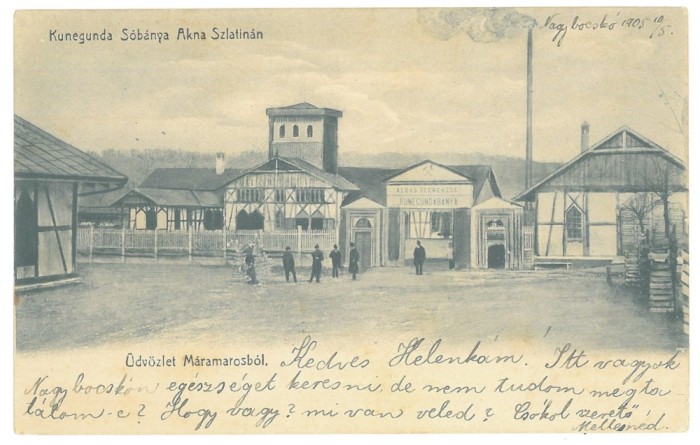 Kunegunda Sóbánya Akna Szlatinán
Nagybocskó 1905 10/5.
KUNEGUNDABÁNYA
Üdvözlet Máramarosból.
Kedves Helenkám. Itt vagyok
Nagybocskón egészséget keresni, de nem tudom megta-
lálom-e? Hogy vagy? mi van veled? Csókol szerető